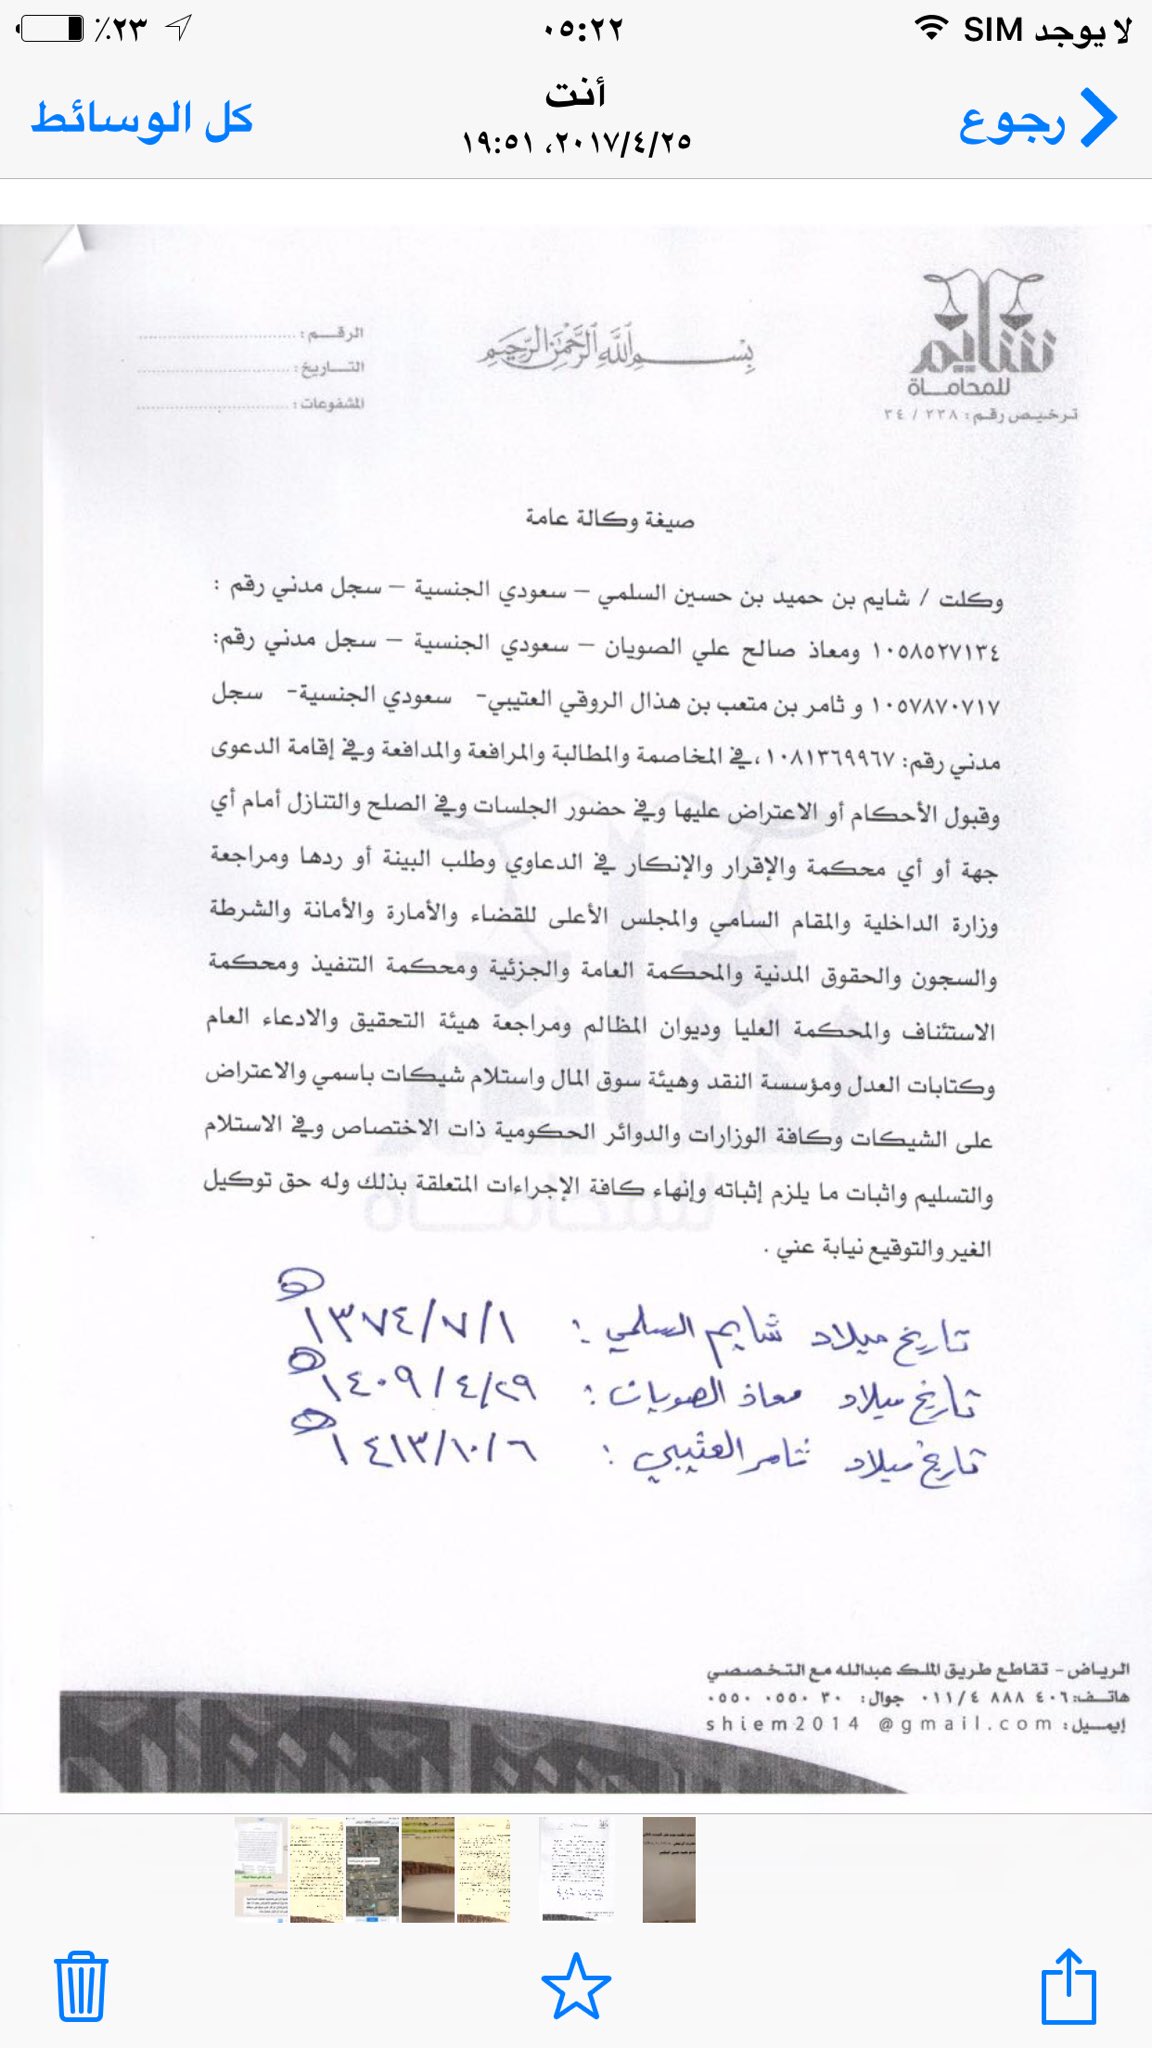 لا يوجد SIM
٠٥:٢٢
٪٢٣
رجوع
أنت
٢٠١٧/٤/٢٥، ١٩:٥١
كل الوسائط
شايم
للمحاماة
ترخيص رقم: ٢٣٨ / ٣٤
بسم الله الرحمن الرحيم
الرقم :
التاريخ :
المشفوعات :
صيغة وكالة عامة
وكلت / شايم بن حميد بن حسين السلمي – سعودي الجنسية – سجل مدني رقم :
١٠٥٨٥٢٧١٣٤ ومعاذ صالح علي الصويان – سعودي الجنسية – سجل مدني رقم:
١٠٥٧٨٧٠٧١٧ و ثامر بن متعب بن هذال الروقي العتيبي- سعودي الجنسية- سجل
مدني رقم: ١٠٨١٣٦٩٩٦٧ ،في المخاصمة والمطالبة والمرافعة والمدافعة وفي إقامة الدعوى
وقبول الأحكام أو الاعتراض عليها وفي حضور الجلسات وفي الصلح والتنازل أمام أي
جهة أو أي محكمة والإقرار والإنكار في الدعاوي وطلب البينة أو ردها ومراجعة
وزارة الداخلية والمقام السامي والمجلس الأعلى للقضاء والأمارة والأمانة والشرطة
والسجون والحقوق المدنية والمحكمة العامة والجزئية ومحكمة التنفيذ ومحكمة
الاستئناف والمحكمة العليا وديوان المظالم ومراجعة هيئة التحقيق والادعاء العام
وكتابات العدل ومؤسسة النقد وهيئة سوق المال واستلام شيكات باسمي والاعتراض
على الشيكات وكافة الوزارات والدوائر الحكومية ذات الاختصاص وفي الاستلام
والتسليم واثبات ما يلزم إثباته وإنهاء كافة الإجراءات المتعلقة بذلك وله حق توكيل
الغير والتوقيع نيابة عني .
تاريخ ميلاد شايم السلمي : ١٣٧٤/٧/١هـ
تاريخ ميلاد معاذ الصويان : ١٤٠٩/٤/٢٩هـ
تاريخ ميلاد ثامر العتيبي : ١٤١٣/١٠/٦هـ
الرياض - تقاطع طريق الملك عبدالله مع التخصصي
هاتف: ٤٠٦ ٨٨٨ ٠١١/٤ جوال: ٣٠ ٠٥٥٠ ٠٥٥٠
إيميل: shiem2014 @gmail.com